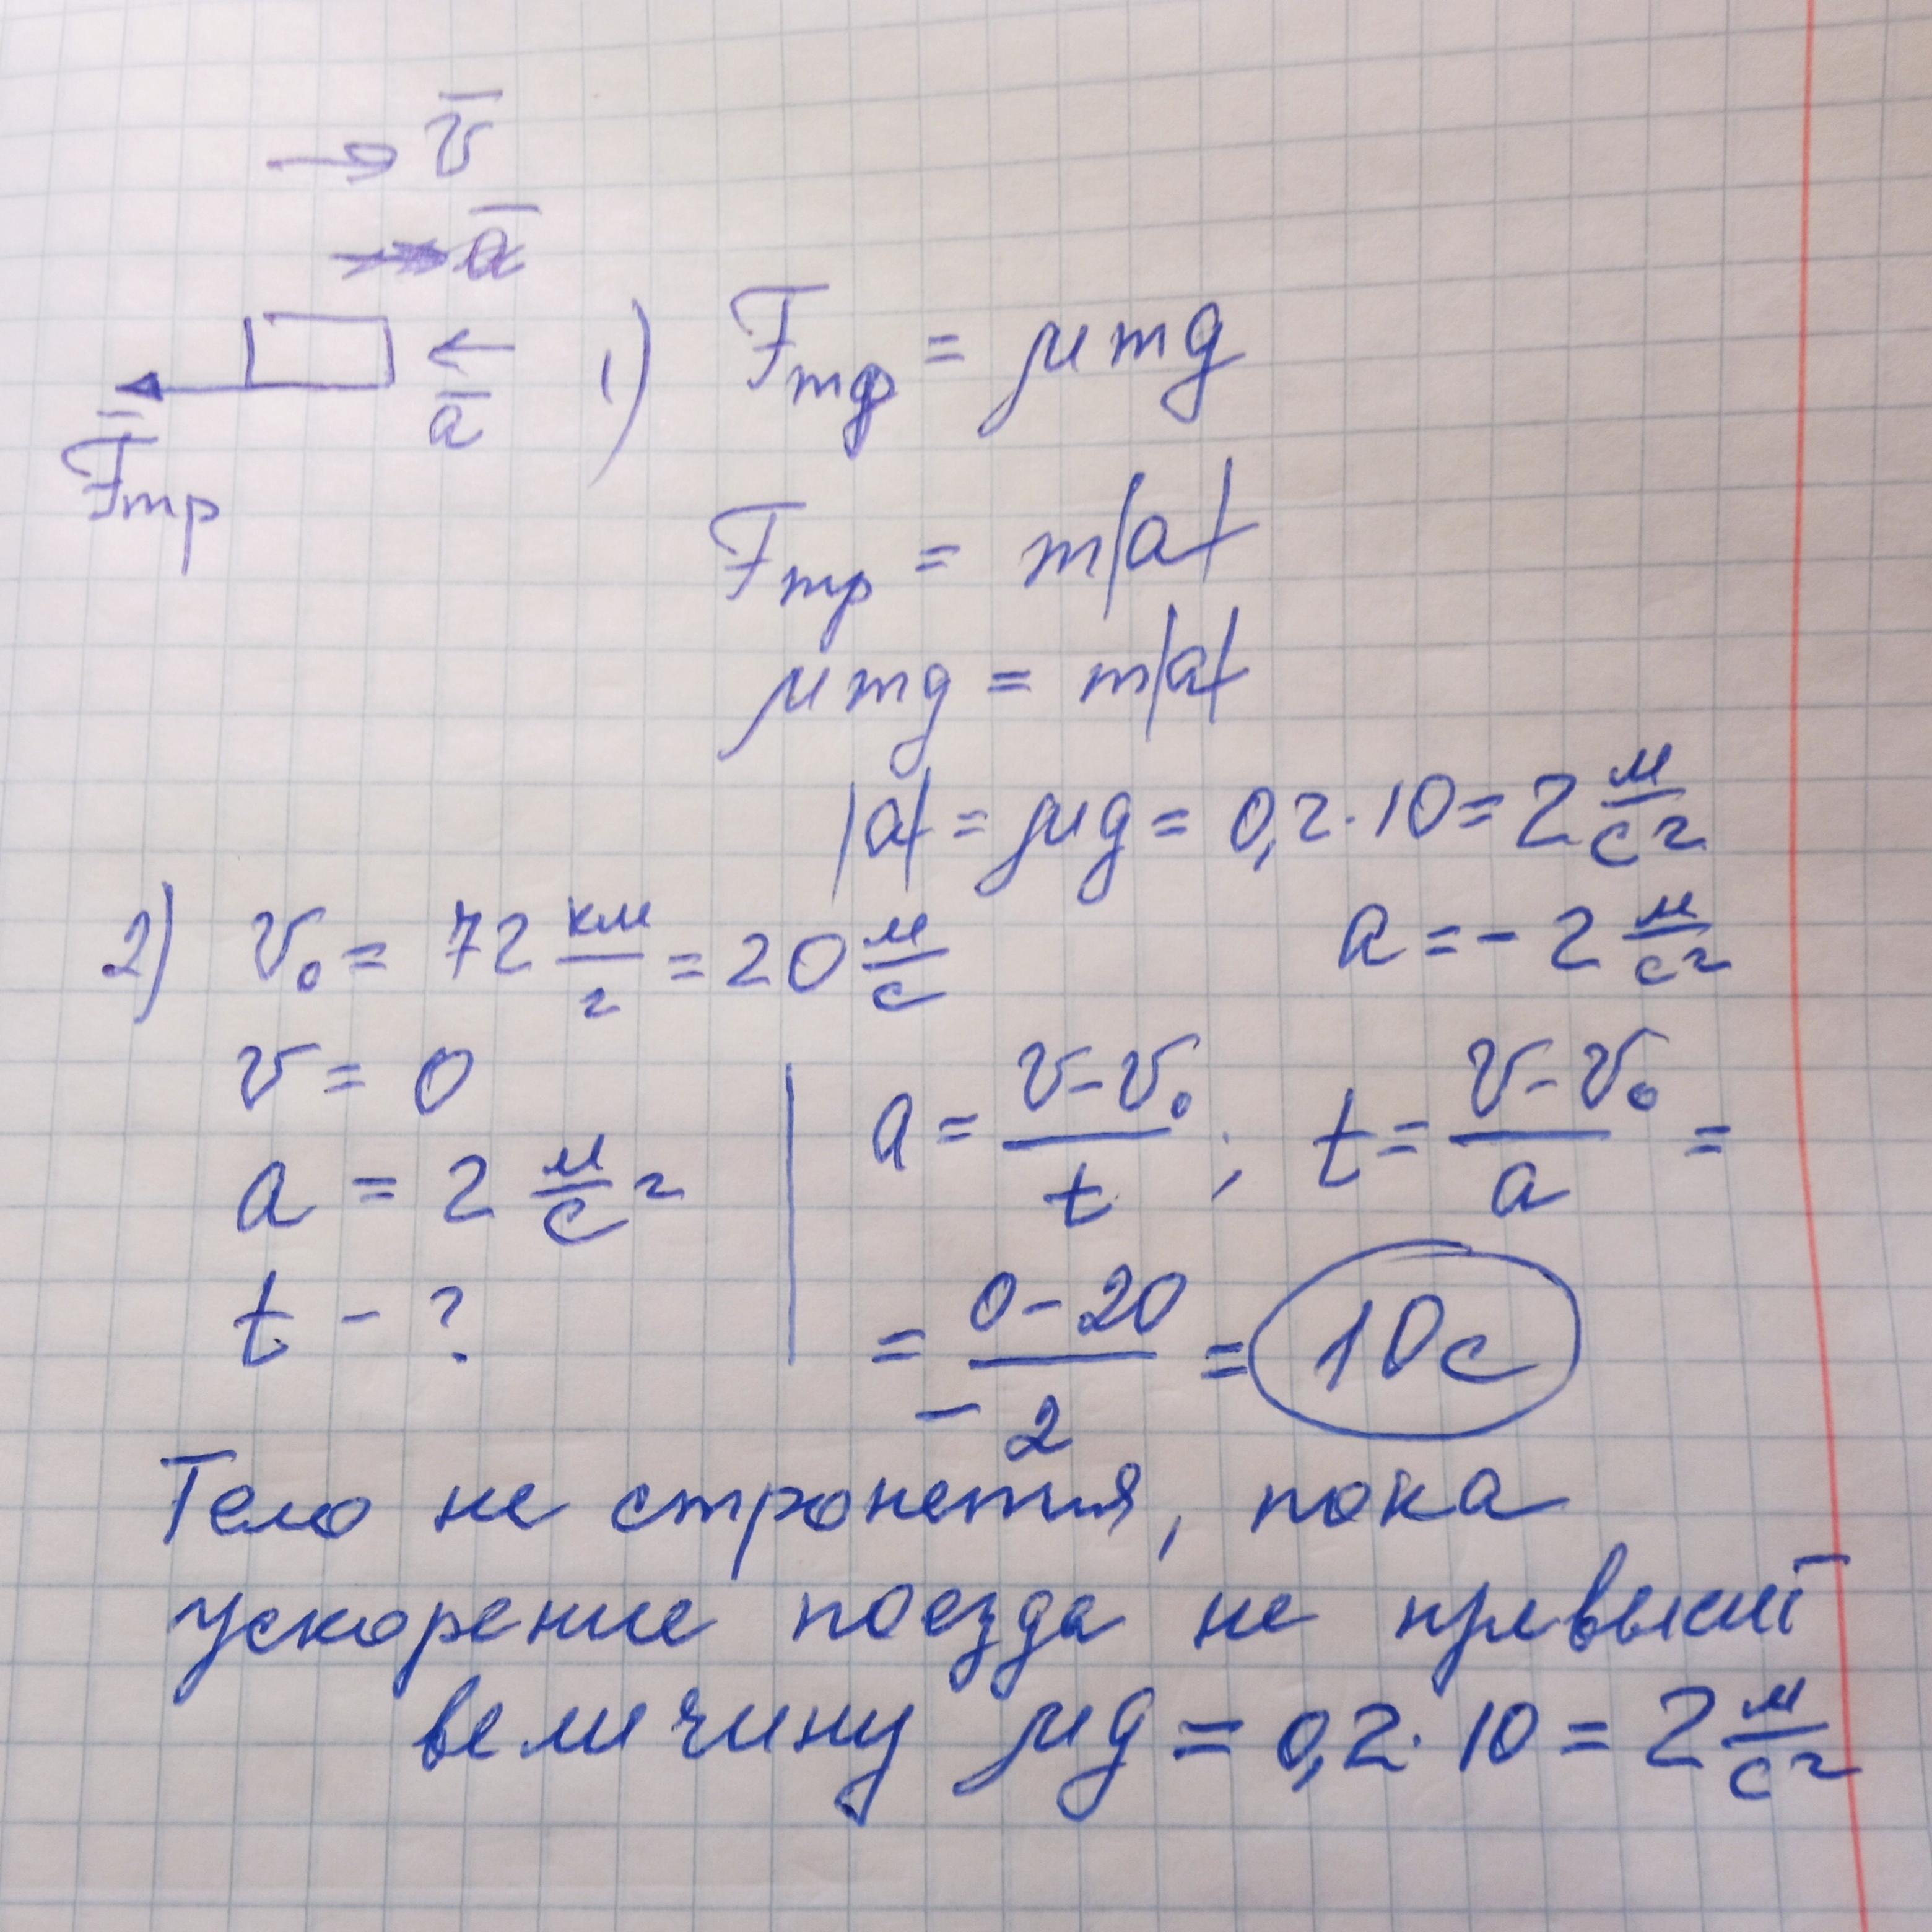 v̅
a̅
a̅
F̅тр
1) Fтр = μmg
Fтр = m|a|
μmg = m|a|
|a| = μg = 0,2·10 = 2 м/с²
a = -2 м/с²
2) v₀ = 72 км/г = 20 м/с
v = 0
a = 2 м/с²
t - ?
a = (v-v₀)/t ; t = (v-v₀)/a =
= (0-20)/-2 = 10с
Тело не стронется, пока
ускорение поезда не превысит
величину μg = 0,2·10 = 2 м/с²